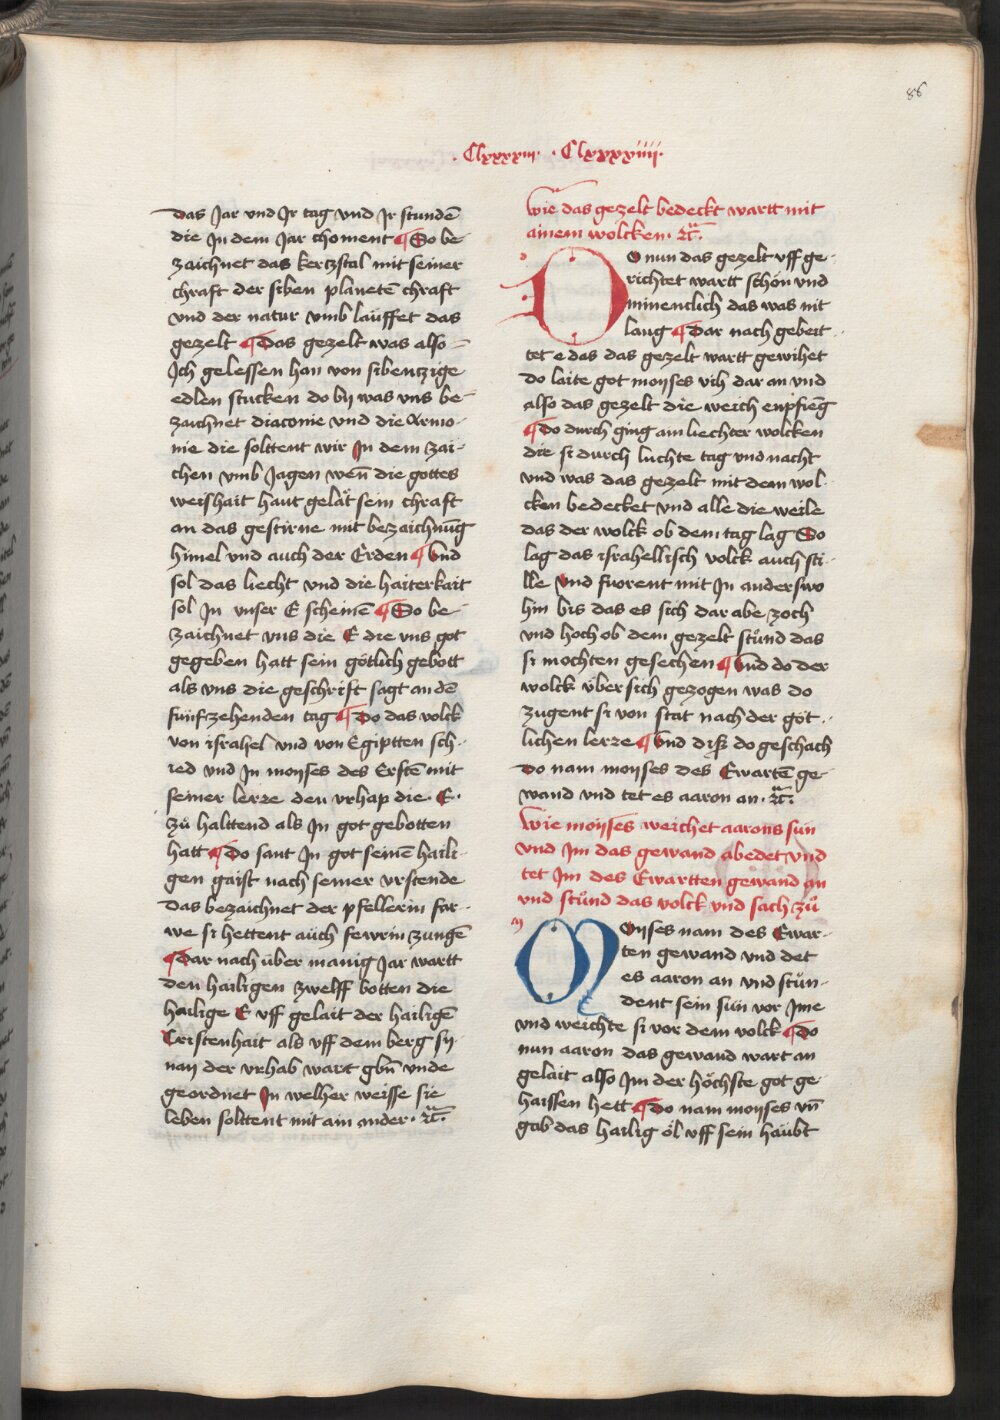 86
. Clxxxxiii . . Clxxxxiiii .
das Jar vnd Jr tag vnd Jr stundē
die Jn dem Jar choment ¶ So be-
zaichnet das kertzstal mit seiner
chraft der siben planetē chraft
vnd der natur vmb lauffet das
gezelt ¶ Das gezelt was also
Jch gelessen han von sibentzige
edlen stucken do bÿ was vns be-
zaichnet diaconie vnd die Armo-
nie die solttent wir Jn dem zai-
chen vmb Jagen wen̄ die gottes
weishait haut gelät sein chraft
an das gestirne mit bezaichnūg
himel vnd auch der Erden ¶ Vnd
sol das liecht vnd die haiterkait
sol Jn vnser E scheinē ¶ So be-
zaichnet vns die E die vns got
gegeben hatt sein götlich gebott
als vns die geschrift sagt an dē
funfzehenden tag ¶ Do das volck
von israhel vnd von Egiptten sch-
ied vnd Jn moyses des Erstē mit
seiner lerze den vrhap die . E .
zů halttend als Jn got gebotten
hatt ¶ Do sant Jn got seinē haili-
gen gaist nach seiner vrstende
das bezaichnet der pfellerin far-
we si hettent aüch fewrin zungē
¶ Dar nach über manig Jar wartt
den hailigen zwelff botten die
hailige E vff gelait der hailigē
Cristenhait als vff dem berg sÿ-
nay der vrhab wart gbn̄ vnde
geordnet Jn welher weisse sie
leben solttent mit ain ander . ꝛc̃ .
Wie das gezelt bedeckt wartt mit
ainem wolcken . ꝛc̃ .
DO nun das gezelt vff ge-
richtet wartt schön vnd
minenclich das was nit
lang ¶ Dar nach gebeit-
tet e das das gezelt wartt gewihet
do laite got moyses vich dar an vnd
also das gezelt die weich enpfieng
¶ Do durch ging ain liechter wolcken
die si durch luchte tag vnd nacht
vnd was das gezelt mit dem wol-
cken bedecket vnd alle die weile
das der wolck ob dem tag lag So
lag das israhellisch volck auch sti-
lle vnd fuorent mit Jn anderswo
hin bis das es sich dar abe zoch
vnd hoch ob dem gezelt stůnd das
si mochten gesechen ¶ Vnd do der
wolck über sich gezogen was do
zugent si von stat nach der göt-
lichen lerze ¶ Vnd diß do geschach
do nam moyses des Ewartē ge-
wand vnd tet es aaron an . ꝛc̃ .
Wie moyses weichet aarons sun
vnd Jm das gewand abedet vnd
tet Jm des Ewartten gewand an
vnd stůnd das volck vnd sach zů
MOyses nam des Ewar-
ten gewand vnd det
es aaron an vnd stůn-
dent sein sün vor Jme
vnd weichte si vor dem volck ¶ Do
nun aaron das gewand wart an
gelait also Jm der höchste got ge-
haissen hett ¶ Do nam moyses vn̄
gab das hailig öl vff sein haübt